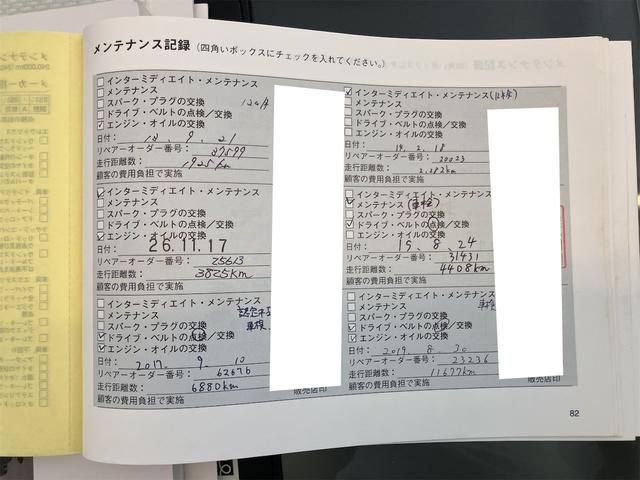 メンテナンス記録 (四角いボックスにチェックを入れてください。)
インターミディエイト・メンテナンス
メンテナンス
スパーク・プラグの交換
ドライブ・ベルトの点検/交換
エンジン・オイルの交換
日付: 13. 9. 21
リペアーオーダー番号: 87599
走行距離数: 1925km
顧客の費用負担で実施
インターミディエイト・メンテナンス
メンテナンス
スパーク・プラグの交換
ドライブ・ベルトの点検/交換
エンジン・オイルの交換
日付: 26.11.17
リペアーオーダー番号: 25613
走行距離数: 3825km
顧客の費用負担で実施
インターミディエイト・メンテナンス
メンテナンス
スパーク・プラグの交換 車検
ドライブ・ベルトの点検/交換
エンジン・オイルの交換
日付: 2017. 9. 10
リペアーオーダー番号: 62676
走行距離数: 6880km
顧客の費用負担で実施
インターミディエイト・メンテナンス
メンテナンス
スパーク・プラグの交換
ドライブ・ベルトの点検/交換
エンジン・オイルの交換
日付: 14. 2. 18
リペアーオーダー番号: 20023
走行距離数: 2,282km
顧客の費用負担で実施
インターミディエイト・メンテナンス
メンテナンス (車検)
スパーク・プラグの交換
ドライブ・ベルトの点検/交換
エンジン・オイルの交換
日付: 15. 8. 24
リペアーオーダー番号: 31431
走行距離数: 4408km
顧客の費用負担で実施
インターミディエイト・メンテナンス
メンテナンス 車検
スパーク・プラグの交換
ドライブ・ベルトの点検/交換
エンジン・オイルの交換
日付: 2019. 8. 30
リペアーオーダー番号: 23236
走行距離数: 11677km
顧客の費用負担で実施
販売店印
販売店印
82